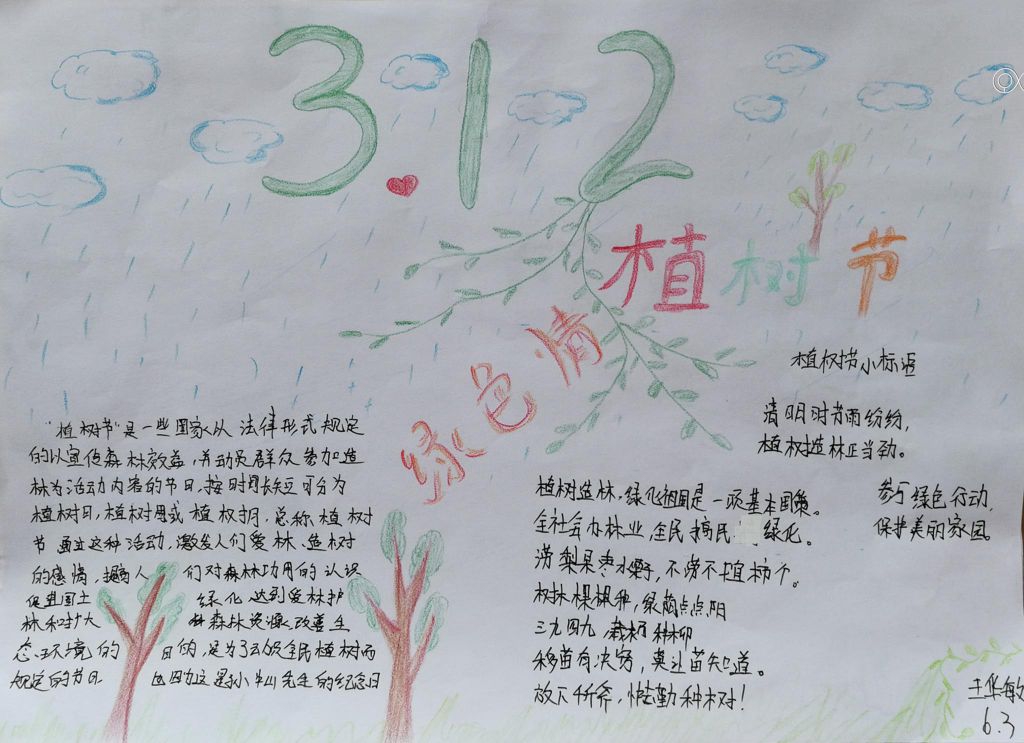 3.12
植树节
绿色情
植树节小标语
清明时节雨纷纷,
植树造林正当劲。
参与绿色行动,
保护美丽家园。
"植树节"是一些国家从法律形式规定
的以宣传森林效益,并动员群众参加造
林为活动内容的节日,按时间长短可分为
植树日,植树周或植树月,总称植树
节 通过这种活动,激发人们爱林、造树
的感情,提高人们对森林功用的认识
促进国土绿化 达到爱林护
林和扩大森林资源、改善生
态环境的目的,是为了动员全民植树而
规定的节日 也因为这是孙中山先生的纪念日
植树造林,绿化祖国是一项基本国策。
全社会办林业,全民搞 绿化。
涝梨旱枣水栗子,不涝不旱植柿个。
三九四九 栽杨种柳
移苗有决窍,莫让苗知道。
放下斤斧,勤种树!
王华敏
6.3